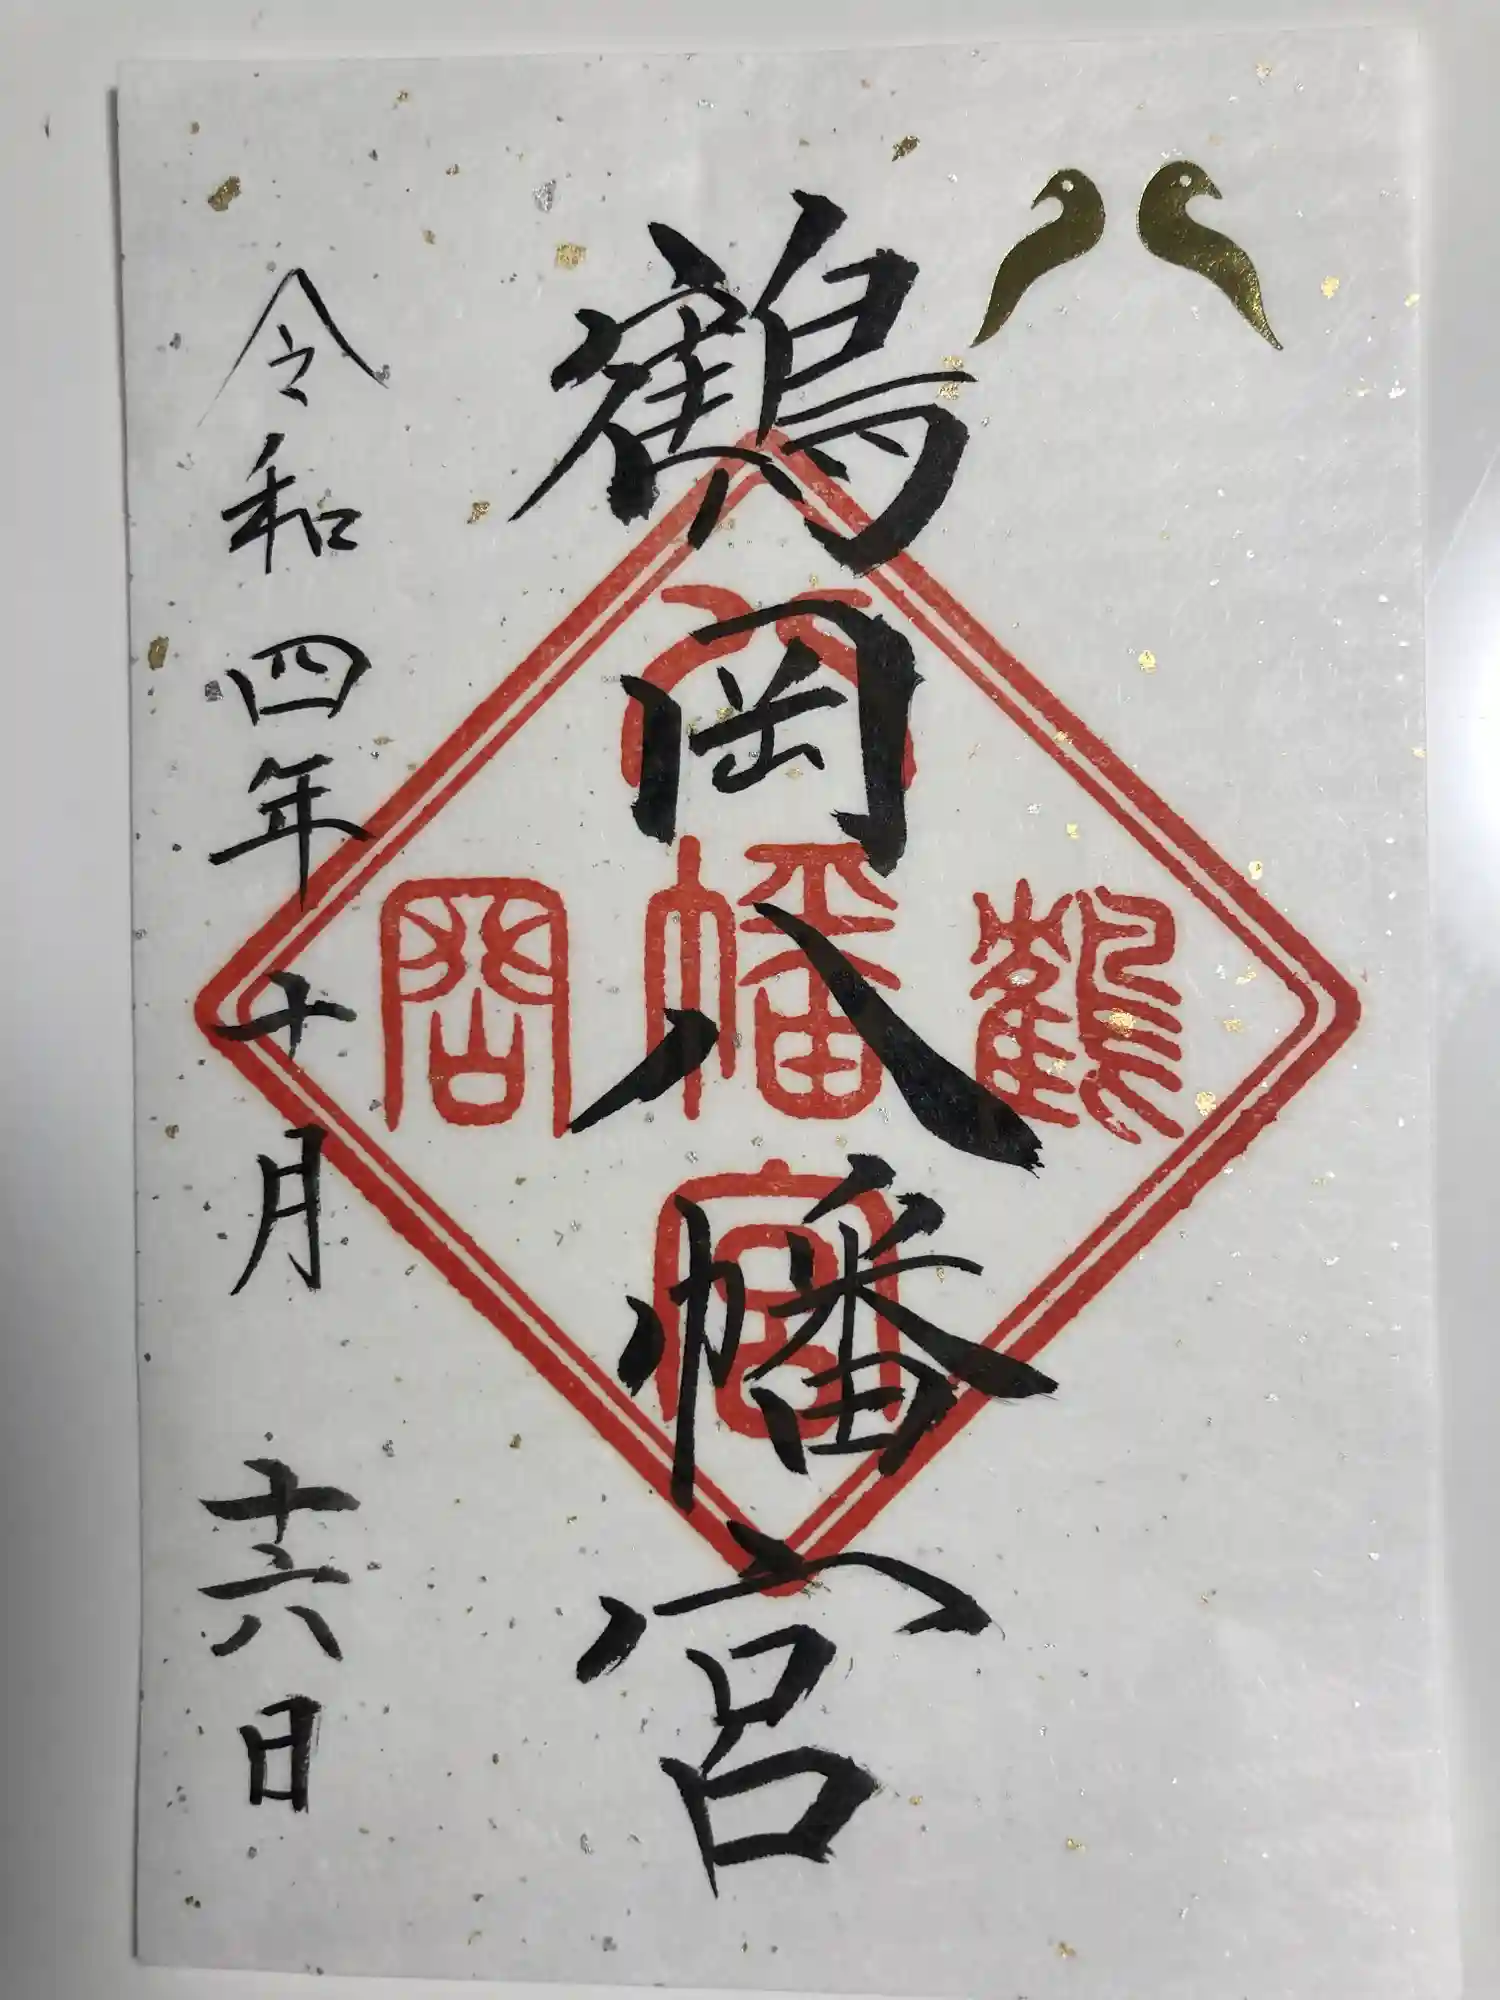 鶴岡八幡宮
鶴
八幡宮
岡
令和四年十月十六日